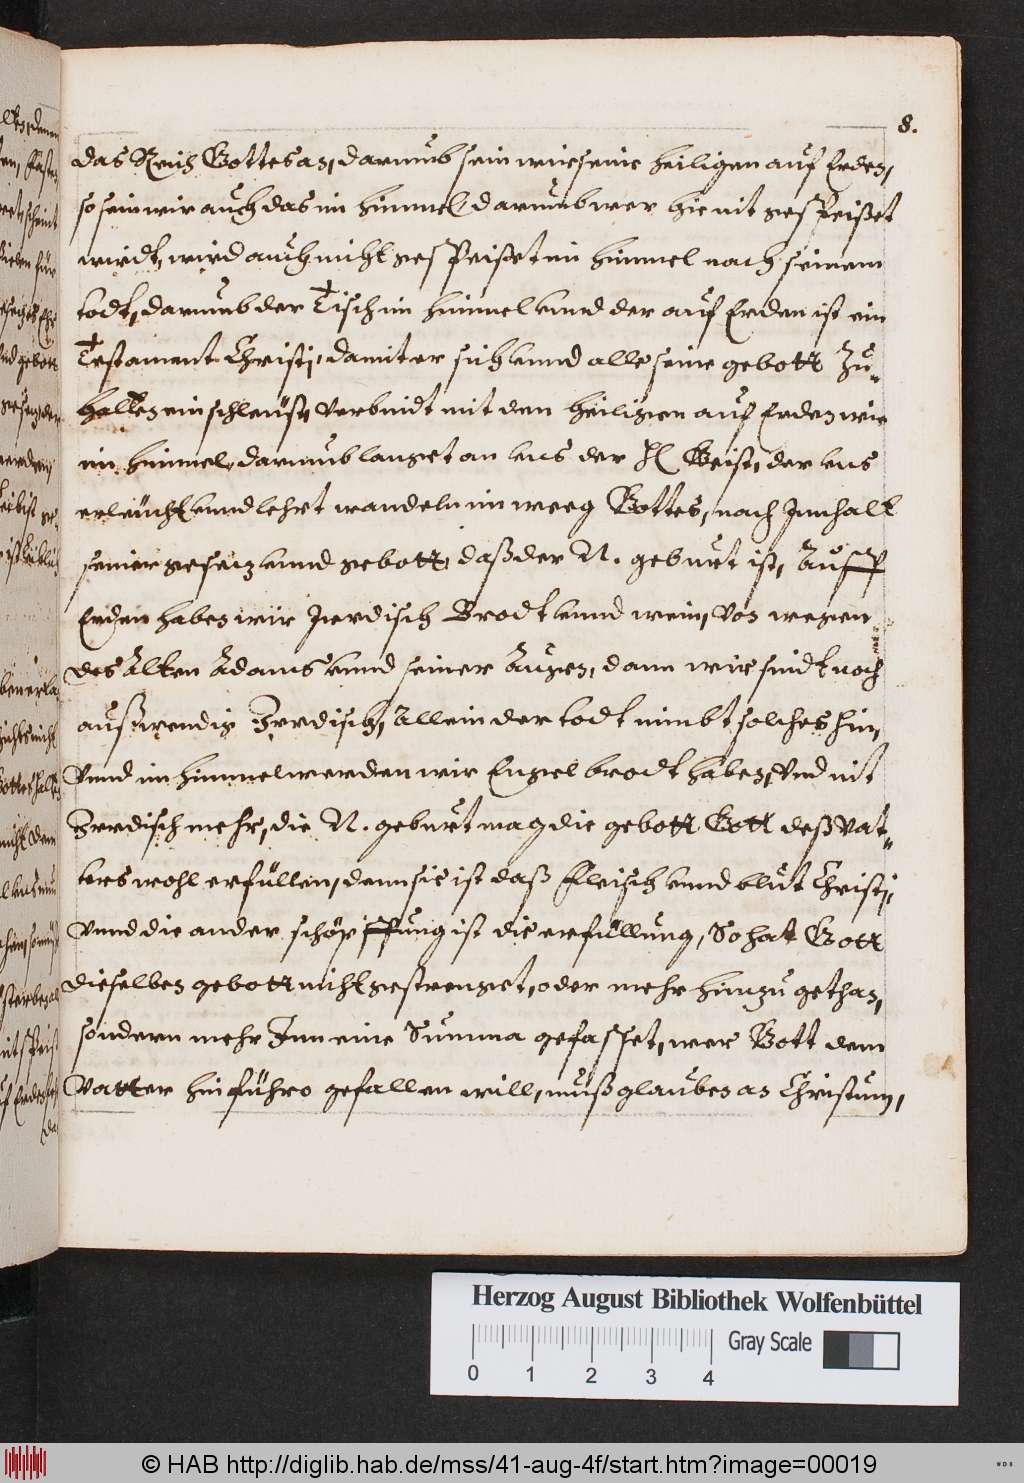 8.
das Reich Gottes an, darumb sein wir seine heiligen auf Erden,
so sein wir auch das im himmel, darumb wer hie nit gespeiset
wirdt, wird auch nicht gespeiset im himmel nach seinem
todt, darumb der Tisch im himmel vnnd der auf Erden ist ein
Testament Christi, damit er sich vnnd alle seine gebott Zu-
halten einschleüst, verbindt mit den heiligen auf Erden wie
im himmel, darumb langet an vns der Hl Geist, der vns
erleücht vnnd lehrt wandeln im weeg Gottes, nach Innhalt
seiner gesetz vnnd gebott, daß der N. geburt ist, Auff
Erden haben wir Jrrdisch Brodt vnnd wein, von wegen
des Alten Adams vnnd seiner Augen, dann wir sindt noch
außwendig Irrdisch, Allein der todt nimbt solches hin,
Vnnd im himmel werden wir Engel brodt haben, Vnd nit
Irrdisch mehr, die N. geburt mag die gebott Gott deß Vat-
ters wohl erfüllen, denn sie ist daß Fleisch vnnd blüt Christi,
Vnnd die ander schöpffung ist die erfüllung, So hat Gott
dieselben gebott nicht gestrenget, oder mehr hinzu gethan,
sondern mehr Inn eine Summa gefasset, wer Gott dem
Vatter hinführo gefallen will, muß glauben an Christum,
Herzog August Bibliothek Wolfenbüttel
Gray Scale
0 1 2 3 4
© HAB http://diglib.hab.de/mss/41-aug-4f/start.htm?image=00019